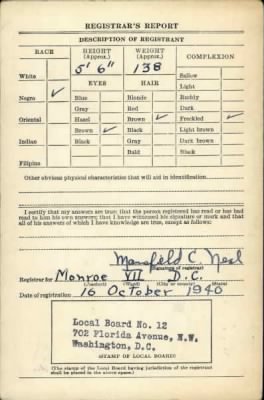 REGISTRAR'S REPORT
DESCRIPTION OF REGISTRANT
RACE HEIGHT (Approx.) WEIGHT (Approx.) COMPLEXION
5' 6" 138
White Sallow
EYES HAIR Light
Negro ✓ Blue Blonde Ruddy
Gray Red Dark
Oriental Hazel Brown ✓ Freckled ✓
Brown ✓ Black Light brown
Indian Black Gray Dark brown
Bald Black
Filipino
Other obvious physical characteristics that will aid in identification
I certify that my answers are true; that the person registered has read or has had
read to him his own answers; that I have witnessed his signature or mark and that
all of his answers of which I have knowledge are true, except as follows:
Mansfield C. Neal
(Signature of registrar)
Registrar for Monroe VII D.C.
(Precinct) (Ward) (City or county) (State)
Date of registration 16 October 1940
Local Board No. 12
702 Florida Avenue, N.W.
Washington, D.C.
(STAMP OF LOCAL BOARD)
(The stamp of the Local Board having jurisdiction of the registrant
shall be placed in the above space.)